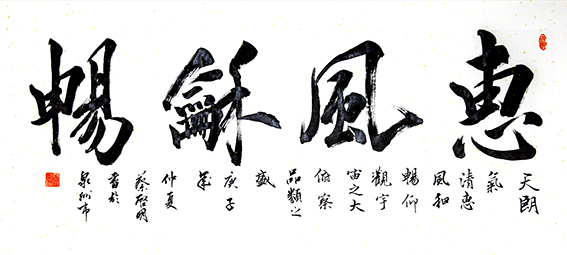 惠風龢暢
天朗
氣
清惠
風和
暢仰
觀宇
宙之大
俯察
品類之
盛
庚子
年
仲夏
蔡啓明
書於
泉州市